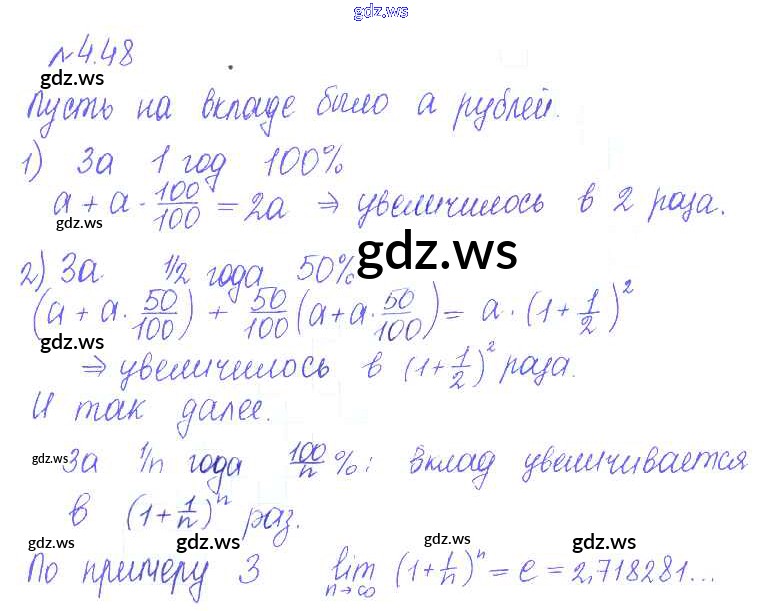 gdz.ws
№4.48
gdz.ws
Пусть на вкладе было а рублей.
1) За 1 год 100%
a + a · 100/100 = 2a ⇒ увеличилось в 2 раза.
gdz.ws
gdz.ws
2) За 1/2 года 50%
(a + a · 50/100) + 50/100 (a + a · 50/100) = a · (1 + 1/2)²
gdz.ws
⇒ увеличилось в (1 + 1/2)² раза.
И так далее.
gdz.ws За 1/n года 100/n %: вклад увеличивается
в (1 + 1/n)ⁿ раз.
gdz.ws gdz.ws gdz.ws gdz.ws
По примеру 3 lim n→∞ (1 + 1/n)ⁿ = e = 2,718281...